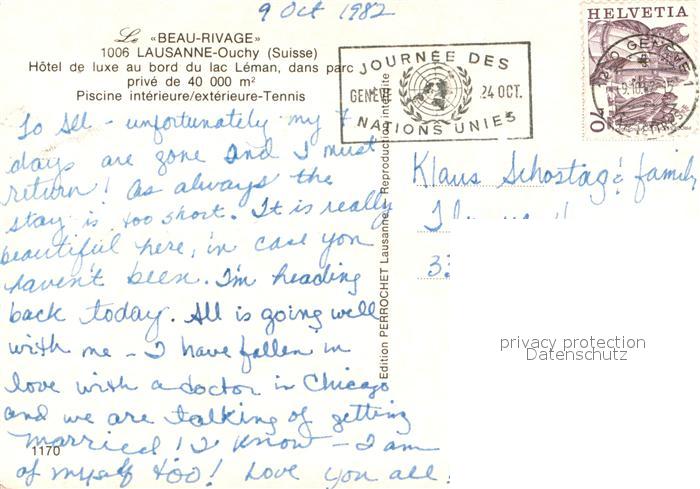 9 Oct 1982
Le «BEAU-RIVAGE»
1006 LAUSANNE-Ouchy (Suisse)
Hôtel de luxe au bord du lac Léman, dans parc
privé de 40 000 m²
Piscine intérieure/extérieure-Tennis
JOURNÉE DES
GENÈVE 24 OCT.
NATIONS UNIES
HELVETIA
70
GENÈVE 1
To All - unfortunately my 7
days are gone and I must
return! As always the
stay is too short. It is really
beautiful here, in case you
haven't been. I'm heading
back today. All is going well
with me - I have fallen in
love with a doctor in Chicago
and we are talking of getting
married! I know - I am
of myself too! Love you all!
1170
Edition PERROCHET Lausanne Reproduction interdite
Klaus Schostag & family
3
privacy protection
Datenschutz